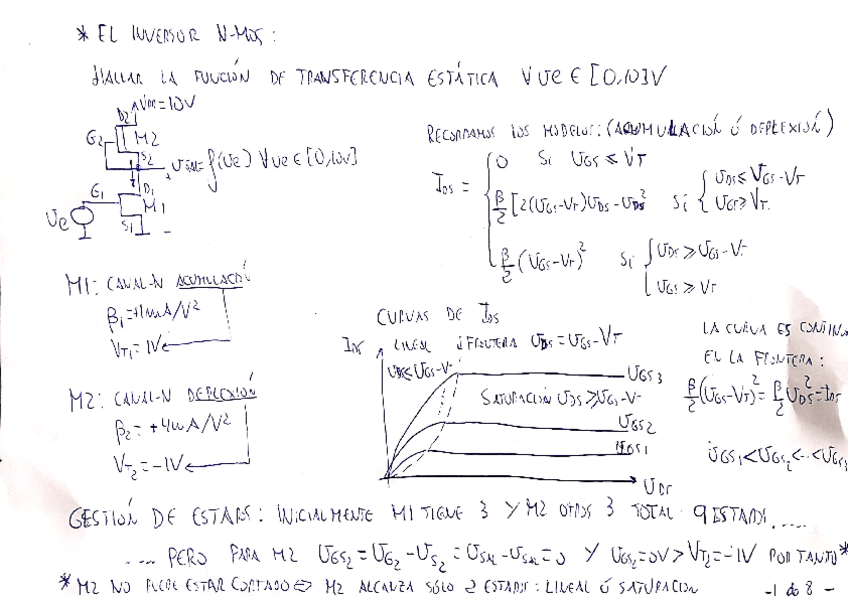 * EL INVERSOR N-MOS:
HALLAR LA FUNCIÓN DE TRANSFERENCIA ESTÁTICA ∀ Ue ∈ [0,10]V
D2 VDD=10V
G2 M2
S2
+ USAL= f(Ue) ∀Ue ∈ [0,10V]
G1 D1
M1
Ue
S1 -
RECORDAMOS LOS MODELOS: (ACUMULACIÓN Ó DEPLEXIÓN)
IDS =
0 Si UGS ≤ VT
β/2 [2(UGS-VT)UDS-UDS²] Si { UDS ≤ UGS-VT
UGS ≥ VT
β/2 (UGS-VT)² Si { UDS ≥ UGS-VT
UGS ≥ VT
M1: CANAL-N ACUMULACIÓ
β1=+1mA/V²
VT1=1V
M2: CANAL-N DEPLEXIÓN
β2=+4mA/V²
VT2=-1V
CURVAS DE IDS
IDS LINEAL FRONTERA UDS=UGS-VT
UDS≤UGS-V
UGS3
SATURACIÓN UDS≥UGS-V
UGS2
UGS1
UDS
LA CURVA ES CONTINU
EN LA FRONTERA:
β/2(UGS-VT)²=β/2 UDS²=IDS
UGS1<UGS2<..<UGS3
GESTIÓN DE ESTADS: INICIALMENTE M1 TIENE 3 Y M2 OTROS 3 TOTAL 9 ESTADS.....
.... PERO PARA M2 UGS2=UG2-US2=USAL-USAL=0 Y UGS2=0V>VT2=-1V POR TANTO*
* M2 NO PUEDE ESTAR CORTADO ⇒ M2 ALCANZA SÓLO 2 ESTADS: LINEAL Ó SATURACION -1 de 8 -